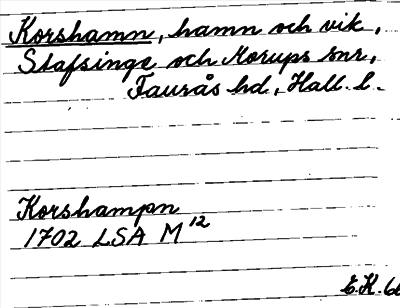 Korshamn, hamn och vik,
Stafsinge och Morups snr,
Faurås hd., Hall. l.
Korshampn
1702 LSA M 12
E.K.